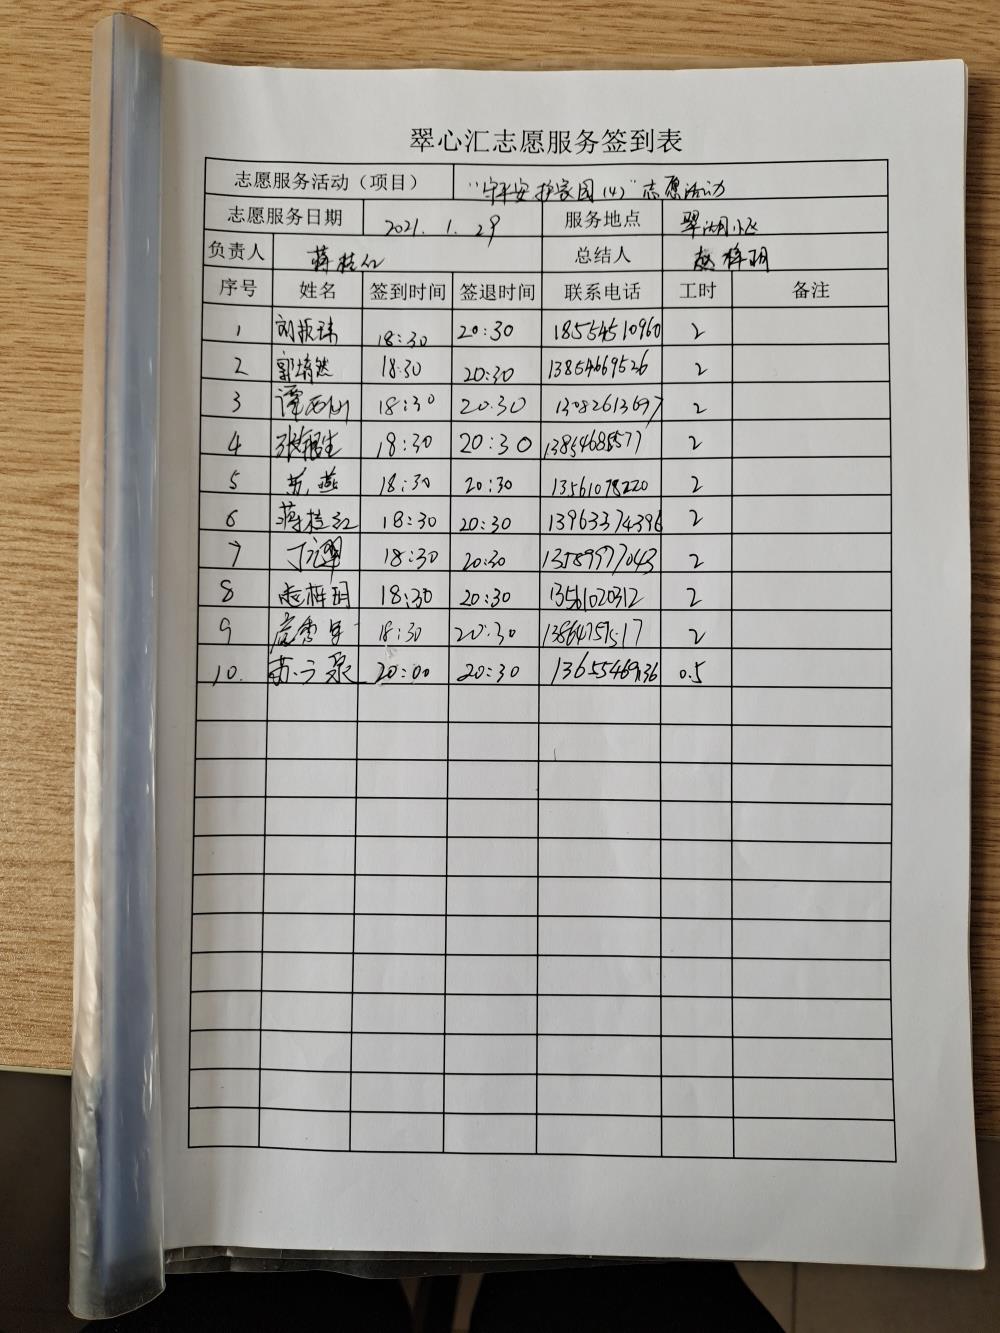 翠心汇志愿服务签到表
志愿服务活动（项目） "守平安护家园(4)"志愿活动
志愿服务日期 2021.1.29 服务地点 翠湖小区
负责人 蒋桂红 总结人 赵梓玥
序号 姓名 签到时间 签退时间 联系电话 工时 备注
1 刘振 18:30 20:30 18554510960 2
2 郭靖然 18:30 20:30 13854669526 2
3 谭 18:30 20:30 13082613697 2
4 张 18:30 20:30 2
5 苏燕 18:30 20:30 13561078220 2
6 蒋桂红 18:30 20:30 13963374396 2
7 丁 18:30 20:30 13589977043 2
8 赵梓玥 18:30 20:30 13561020312 2
9 18:30 20:30 13864757517 2
10. 苏 20:00 20:30 0.5